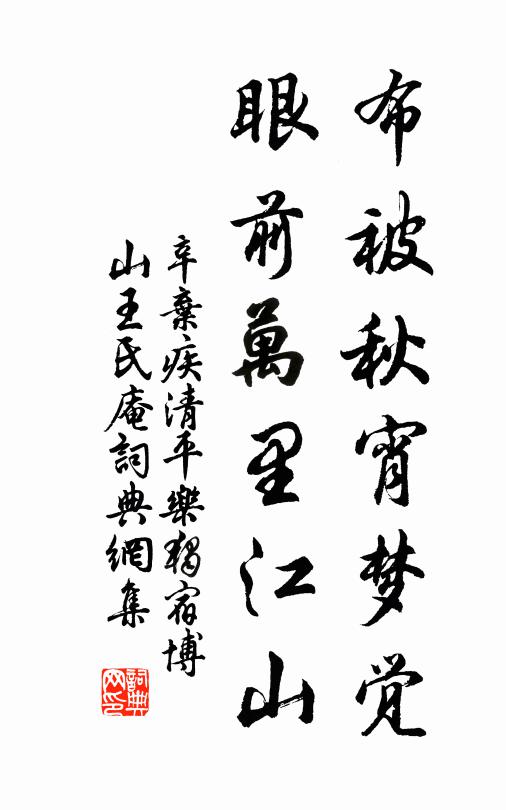 布被秋宵梦觉
眼前萬里江山
辛棄疾清平樂獨宿博
山王氏庵詞典網集
詞典
网印